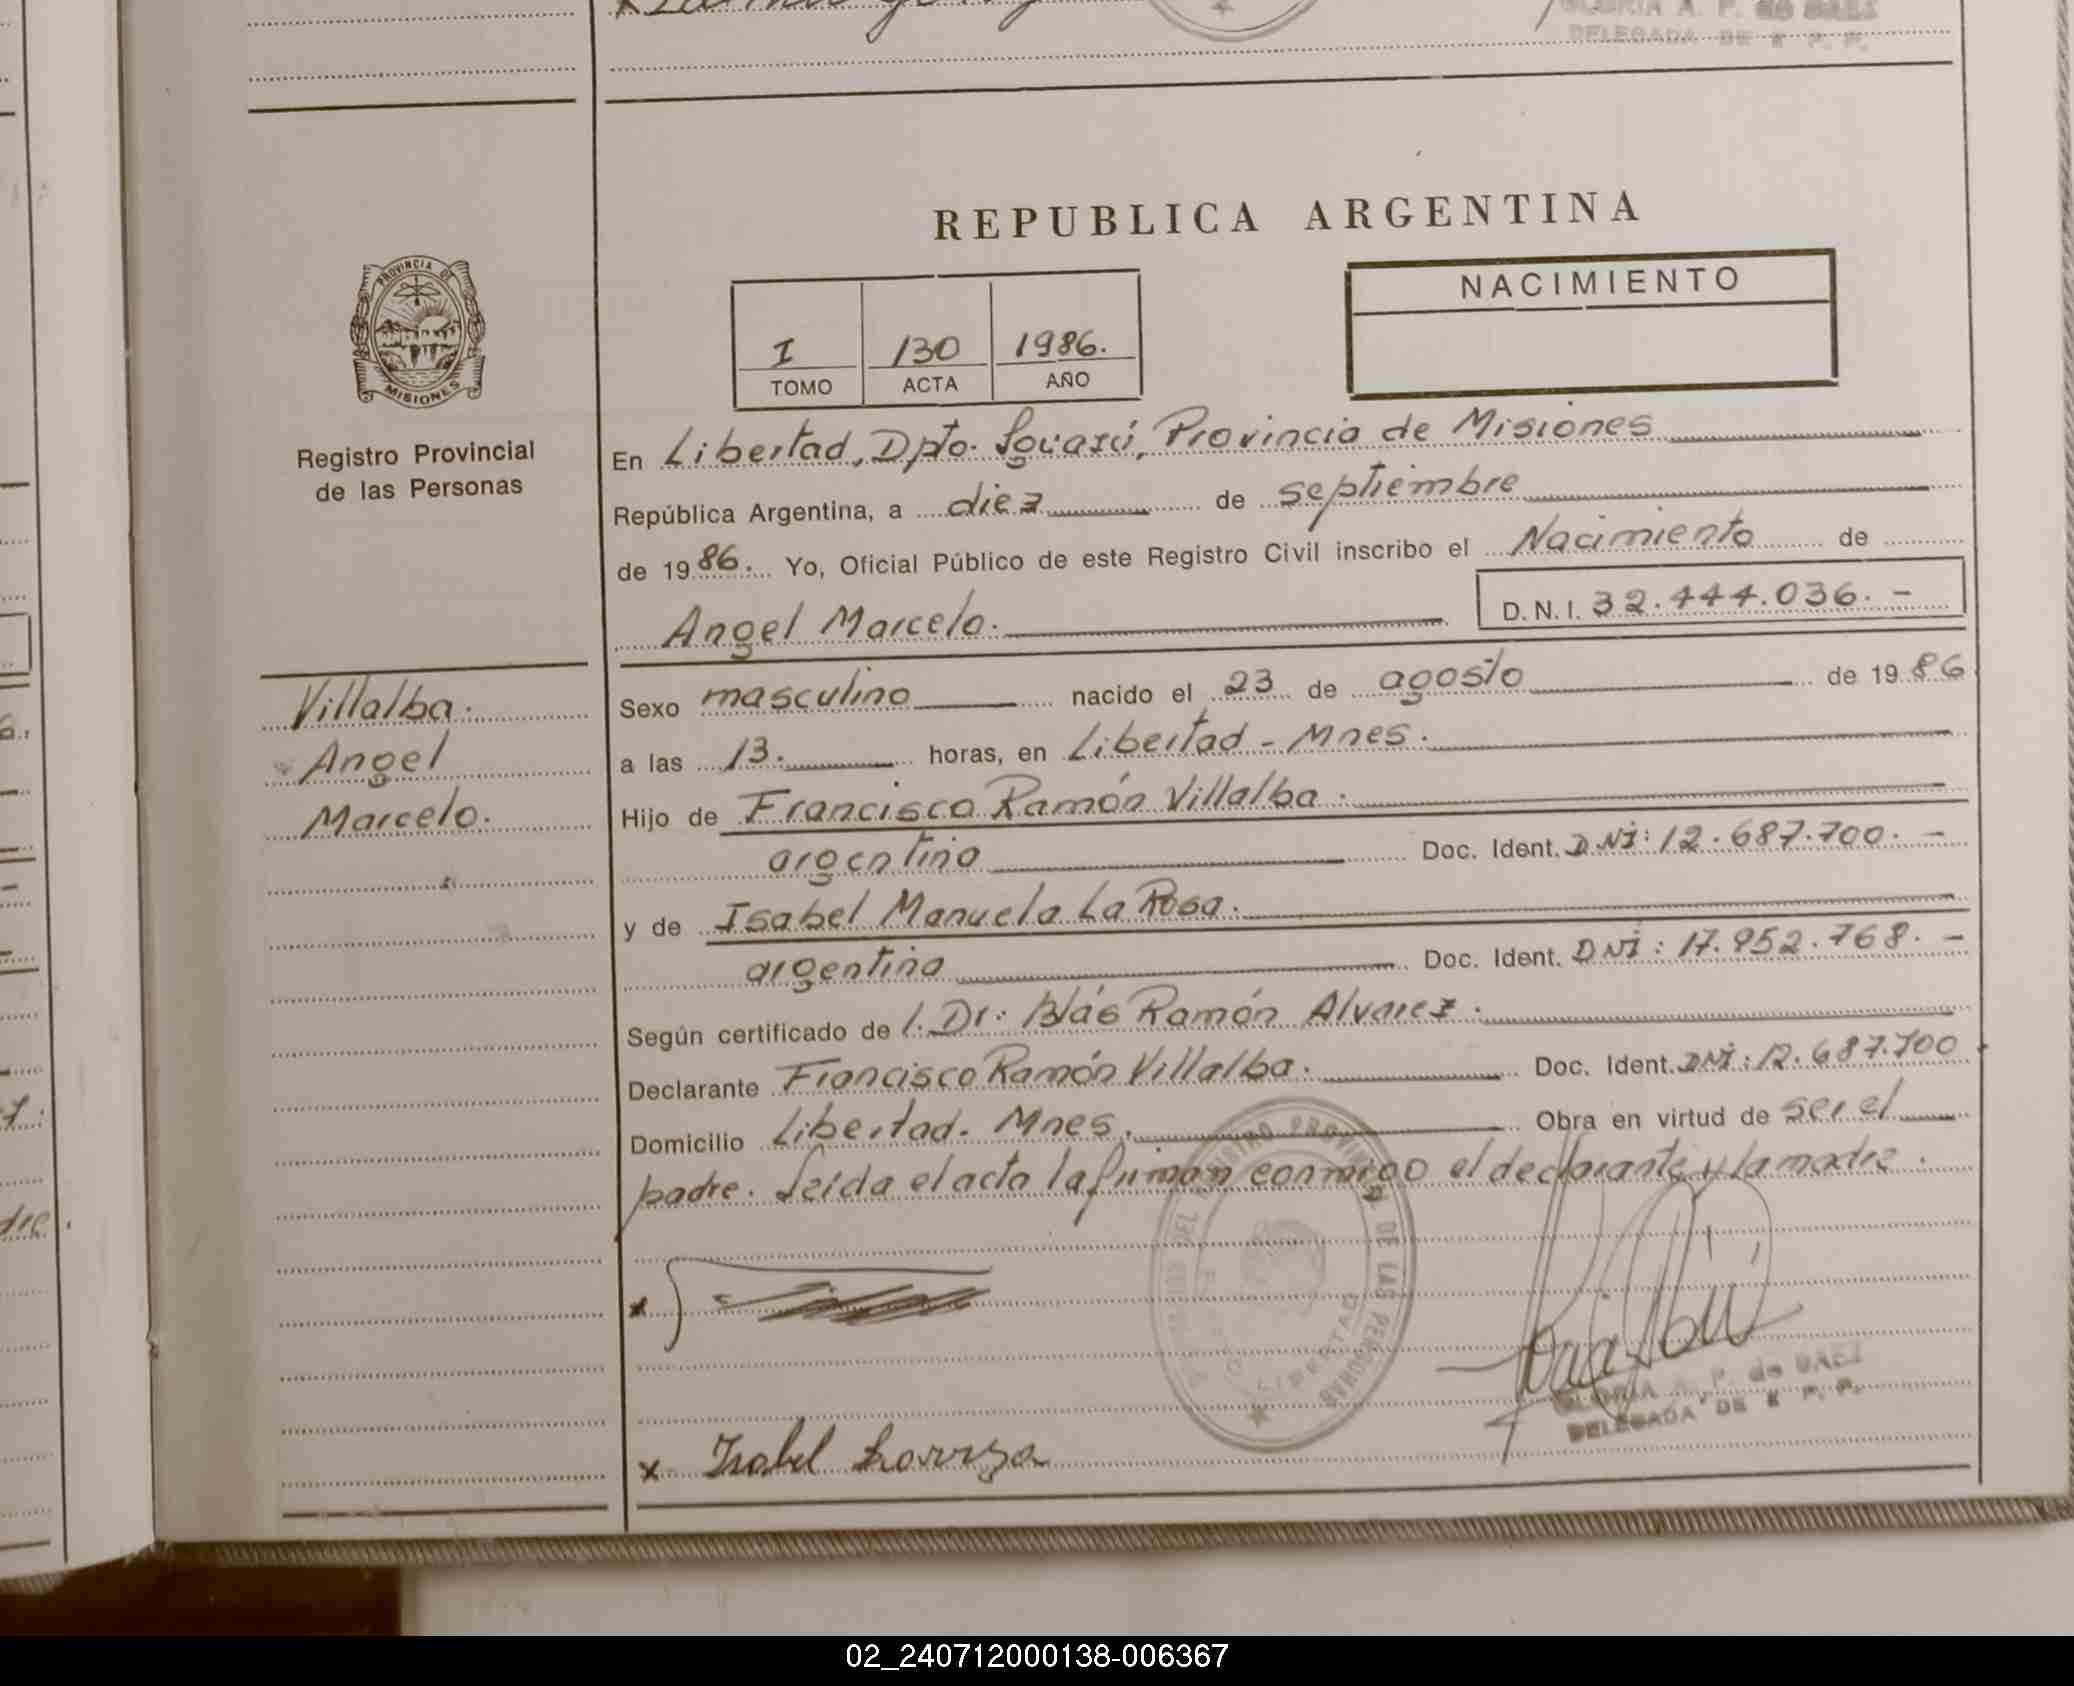 DELEGADA DE R P. P.
REPUBLICA ARGENTINA
PROVINCIA DE
MISIONES
NACIMIENTO
I 130 1986.
TOMO ACTA AÑO
Registro Provincial
de las Personas
En Libertad, Dpto. Iguazú, Provincia de Misiones
República Argentina, a diez de septiembre
de 1986. Yo, Oficial Público de este Registro Civil inscribo el Nacimiento de
Angel Marcelo. D.N.I. 32.444.036. -
Villalba.
Angel
Marcelo.
Sexo masculino nacido el 23 de agosto de 1986
a las 13. horas, en Libertad - Mnes.
Hijo de Francisco Ramón Villalba.
argentino Doc. Ident. DNI: 12.687.700. -
y de Isabel Manuela La Rosa.
argentina Doc. Ident. DNI: 17.952.768. -
Según certificado de l. Dr: Blás Ramón Alvarez.
Declarante Francisco Ramón Villalba. Doc. Ident. DNI: 12.687.700
Domicilio Libertad. Mnes. Obra en virtud de ser el
padre. Leída el acta la firman conmigo el declarante y la madre.
REGISTRO PROVINCIAL DE LAS PERSONAS
LIBERTAD
GLORIA A. P. de BAEZ
DELEGADA DE R P. P.
x
x Isabel Larrosa
02_240712000138-006367